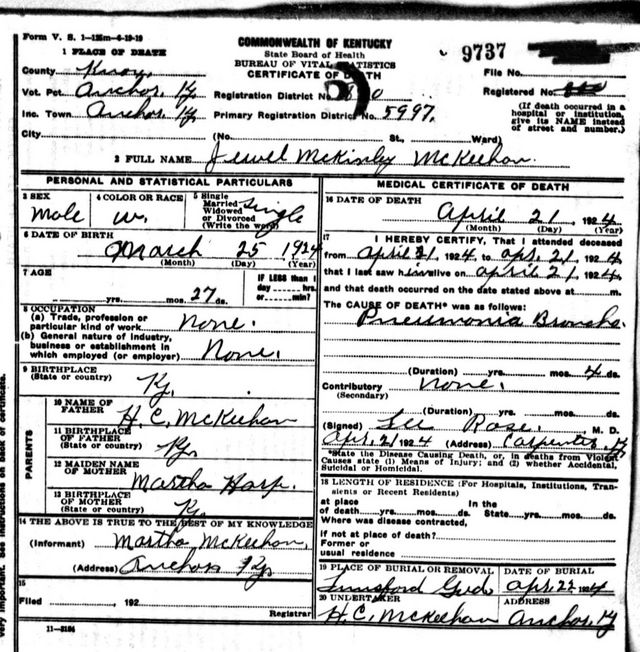 Form V. S. 1-125m-6-19-19
COMMONWEALTH OF KENTUCKY
State Board of Health
BUREAU OF VITAL STATISTICS
CERTIFICATE OF DEATH
9737
File No.
Registered No.
(If death occurred in a hospital or institution, give its NAME instead of street and number.)
1 PLACE OF DEATH
County Knox,
Vot. Pct. Anchor Ky. Registration District No.
Inc. Town Anchor Ky. Primary Registration District No. 5997.
City (No. St., Ward)
2 FULL NAME Jewel McKinley McKeehan.
PERSONAL AND STATISTICAL PARTICULARS
3 SEX Male
4 COLOR OR RACE W.
5 Single Married Widowed or Divorced (Write the word) Single
6 DATE OF BIRTH
March 25 1924
(Month) (Day) (Year)
7 AGE
yrs. mos. 27 ds.
IF LESS than 1 day, hrs. or min?
8 OCCUPATION
(a) Trade, profession or particular kind of work None.
(b) General nature of industry, business or establishment in which employed (or employer) None.
9 BIRTHPLACE (State or country) Ky.
PARENTS
10 NAME OF FATHER H. C. McKeehan
11 BIRTHPLACE OF FATHER (State or country) Ky.
12 MAIDEN NAME OF MOTHER Martha Harp.
13 BIRTHPLACE OF MOTHER (State or country) Ky.
14 THE ABOVE IS TRUE TO THE BEST OF MY KNOWLEDGE
(Informant) Martha McKeehan,
(Address) Anchor Ky.
15
Filed 192
Registrar
11-3184
MEDICAL CERTIFICATE OF DEATH
16 DATE OF DEATH
April 21, 1924
(Month) (Day) (Year)
17 I HEREBY CERTIFY, That I attended deceased
from April 21, 1924 to Apr. 21 1924
that I last saw him alive on April 21, 1924,
and that death occurred on the date stated above at m.
The CAUSE OF DEATH* was as follows:
Pneumonia Broncho.
(Duration) yrs. mos. 4 ds.
Contributory None.
(Secondary)
(Duration) yrs. mos. ds.
(Signed) Lee Rose. M. D.
Apr. 21 1924 (Address) Carpenter, Ky
*State the Disease Causing Death, or, in deaths from Violent Causes state (1) Means of Injury; and (2) whether Accidental, Suicidal or Homicidal.
18 LENGTH OF RESIDENCE (For Hospitals, Institutions, Transients or Recent Residents)
at place of death yrs. mos. ds. In the State yrs. mos. ds.
Where was disease contracted,
If not at place of death?
Former or usual residence
19 PLACE OF BURIAL OR REMOVAL
Lunsford
DATE OF BURIAL
Apr. 22 1924
20 UNDERTAKER
H. C. McKeehan
ADDRESS
Anchor, Ky
very important. See instructions on back of certificate.